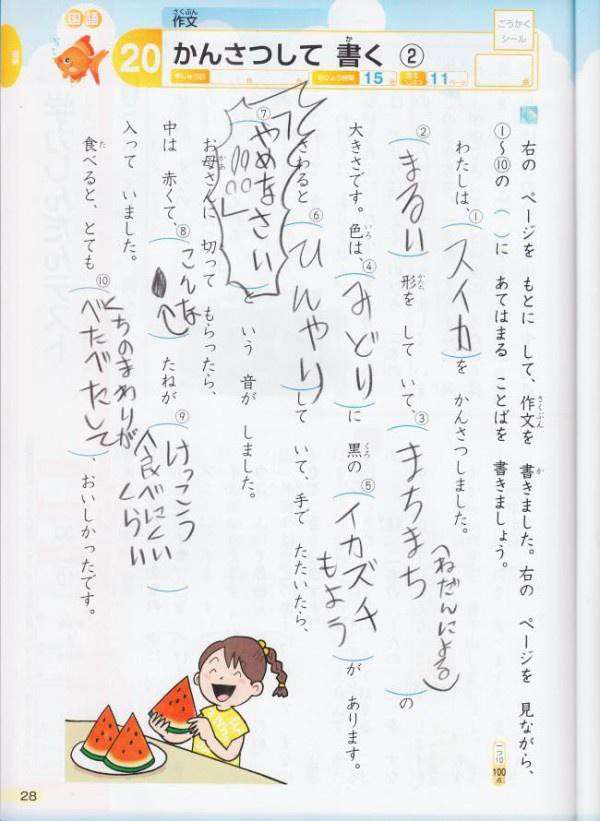 国語
作文
さくぶん
20 かんさつして 書く ②
か
15
11
ごうかく
シール
点
右の ページを もとに して、作文を 書きました。右の ページを 見ながら、
さくぶん
か
①〜⑩の( )に あてはまる ことばを 書きましょう。
一つ10
100点
わたしは、①(スイカ)を かんさつしました。
②(まるい)形を して いて、③(まちまち(ねだんによる))の
かたち
大きさです。色は、④(みどり)に 黒の ⑤(イカズチもよう)が あります。
いろ
くろ
さわると ⑥(ひんやり)して いて、手で たたいたら、
⑦(「やめなさい」)と いう 音が しました。
お母さんに 切って もらったら、
かあ
中は 赤くて、⑧(こんな)たねが ⑨(けっこう食べにくいくらい)
入って いました。
食べると、とても ⑩(くちのまわりがべたべたして)、おいしかったです。
た
28